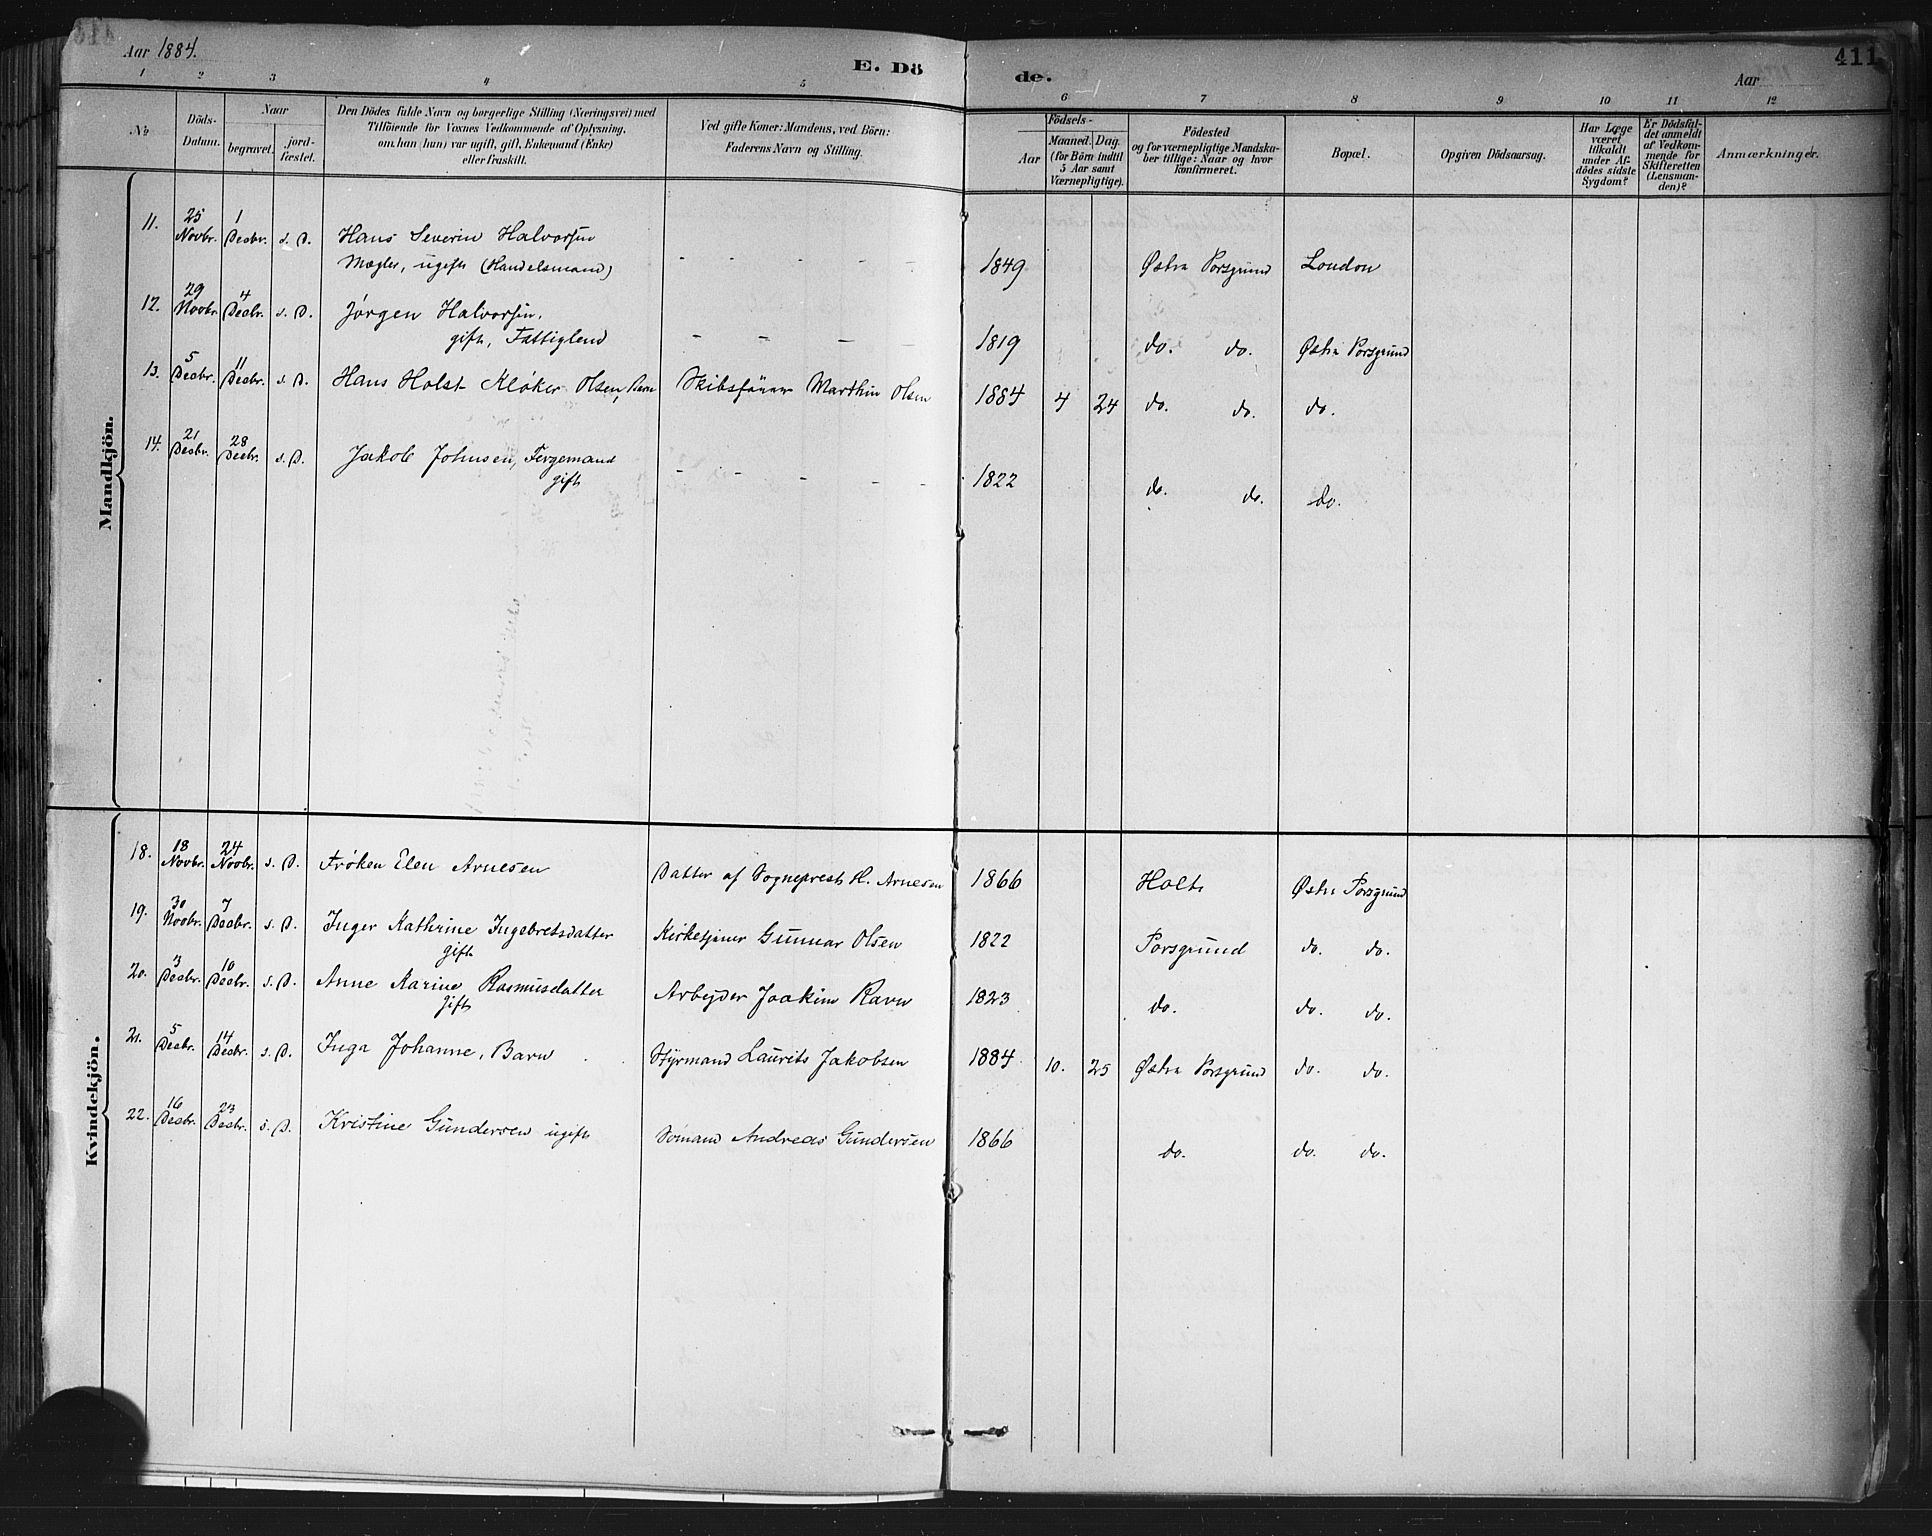 Aar 1884.
E. Dö
de.
Aar
411
1 2 3 4 5 6 7 8 9 10 11 12
No
Döds-
Datum.
Naar
begravet.
jord-
fæstet.
Den Dödes fulde Navn og borgerlige Stilling (Næringsvei) med
Tilföiende for Voxnes Vedkommende af Oplysning,
om han (hun) var ugift, gift, Enkemand (Enke)
eller fraskilt.
Ved gifte Koner: Mandens, ved Börn:
Faderens Navn og Stilling.
Födsels-
Aar
Maaned. Dag.
(for Börn indtil
5 Aar samt
Værnepligtige).
Födested
og for værnepligtige Mandska-
ber tillige: Naar og hvor
konfirmeret.
Bopæl.
Opgiven Dödsaarsag.
Har Læge
været
tilkaldt
under Af-
dödes sidste
Sygdom?
Er Dödsfal-
det anmeldt
af Vedkom-
mende for
Skifteretten
(Lensman-
den)?
Anmærkninger.
Mandkjön.
11. 25 Novbr. 1 Decbr. s. D. Hans Severin Halvorsen
Mægler, ugift (Handelsmand) - - - - - 1849 Østre Porsgrund London
12. 29 Novbr. 4 Decbr. s. D. Jørgen Halvorsen,
gift, Fattiglem - - - - 1819 do. do. Østre Porsgrund
13. 5 Decbr. 11 Decbr. s. D. Hans Holst Kløker Olsen, Barn Skibsfører Marthin Olsen 1884 4 24 do. do. do.
14. 21 Decbr. 28 Decbr. s. D. Jakob Johnsen, Fergemand
gift - - - - - 1822 do. do. do.
Kvindekjön.
18. 18 Novbr. 24 Novbr. s. D. Frøken Elen Arnesen Datter af Sogneprest H. Arnesen 1866 Holt Østre Porsgrund
19. 30 Novbr. 7 Decbr. s. D. Inger Kathrine Ingebretsdatter
gift Kirketjener Gunnar Olsen 1822 Porsgrund do. do.
20. 3 Decbr. 10 Decbr. s. D. Anne Karine Rasmusdatter
gift Arbejder Joakim Ravn 1823 do. do. do.
21. 5 Decbr. 14 Decbr. s. D. Inga Johanne, Barn Styrmand Laurits Jakobsen 1884 10. 25 Østre Porsgrund do. do.
22. 16 Decbr. 23 Decbr. s. D. Kristine Gundersen ugift Sømand Andreas Gundersen 1866 do. do. do.